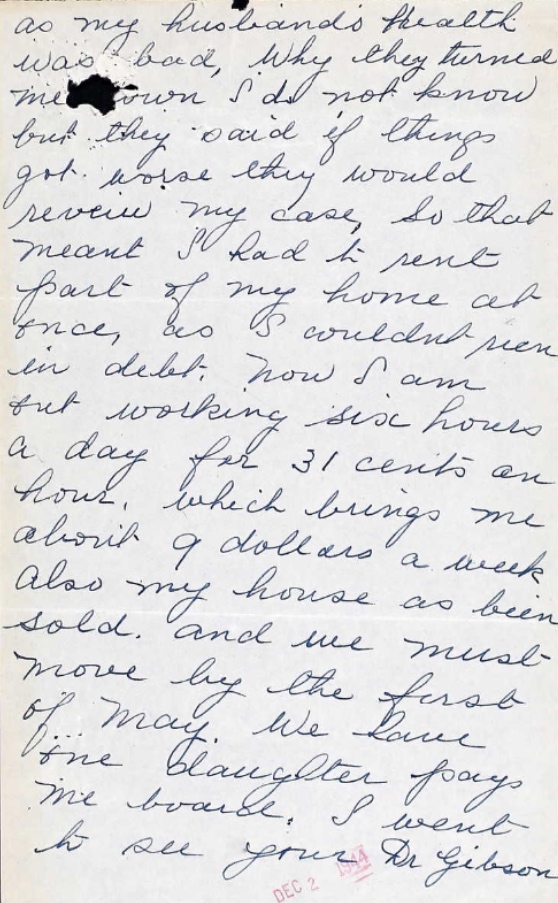 as my husbands health
was bad, Why they turned
me own I do not know
but they said if things
got worse they would
reveiw my case, So that
meant I had to rent
part of my home at
once, as I couldnt run
in debt. Now I am
out working six hours
a day for 31 cents an
hour. which brings me
about 9 dollars a week
also my house as been
sold. and we must
move by the first
of May. We have
one daughter pays
me board. I went
to see your Dr Gibson
DEC 2 1944